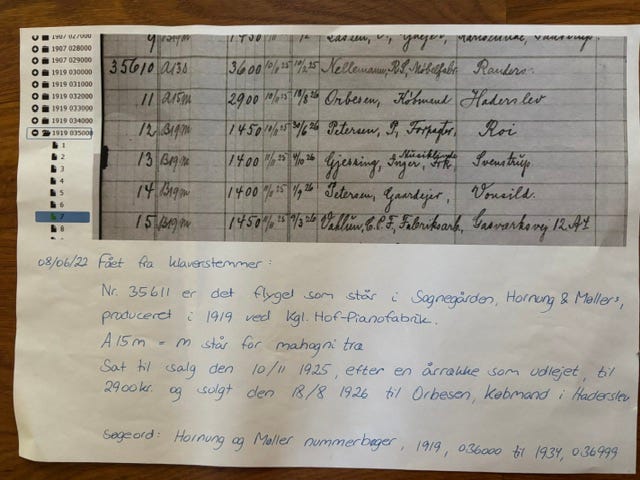 1907 027000
1907 028000
1907 029000
1919 030000
1919 031000
1919 032000
1919 033000
1919 034000
1919 035000
1
2
3
4
5
6
7
8
9 B19m 1450
35610 A13s 3600 10/11 25 Nellemann, R.S, Møbelfabr. Randers.
11 A15m 2900 10/11 25 18/8 26 Orbesen, Købmand Haderslev
12 B19m 1450 10/11 25 30/6 26 Petersen, P, Forpagter, Roi
13 B19m 1400 10/11 25 4/10 26 Gjessing, Inger, Frk. Svenstrup.
14 B19m 1400 10/11 25 1/9 26 Petersen, Gaardejer, Vonsild.
15 B19m 1450 10/11 25 9/3 26 C.P.F, Fabriksarb, Gasværksvej 12 A
08/06/22 Fået fra klaverstemmer:
Nr. 35611 er det flygel som står i Sognegården, Hornung & Møllers,
produceret i 1919 ved Kgl. Hof-Pianofabrik.
A15m = m står for mahogni træ
Sat til salg den 10/11 1925, efter en årrække som udlejet, til
2900kr. og solgt den 18/8 1926 til Orbesen, Købmand i Haderslev
Søgeord: Hornung og Møller nummerbøger, 1919, 036000 til 1934, 036999